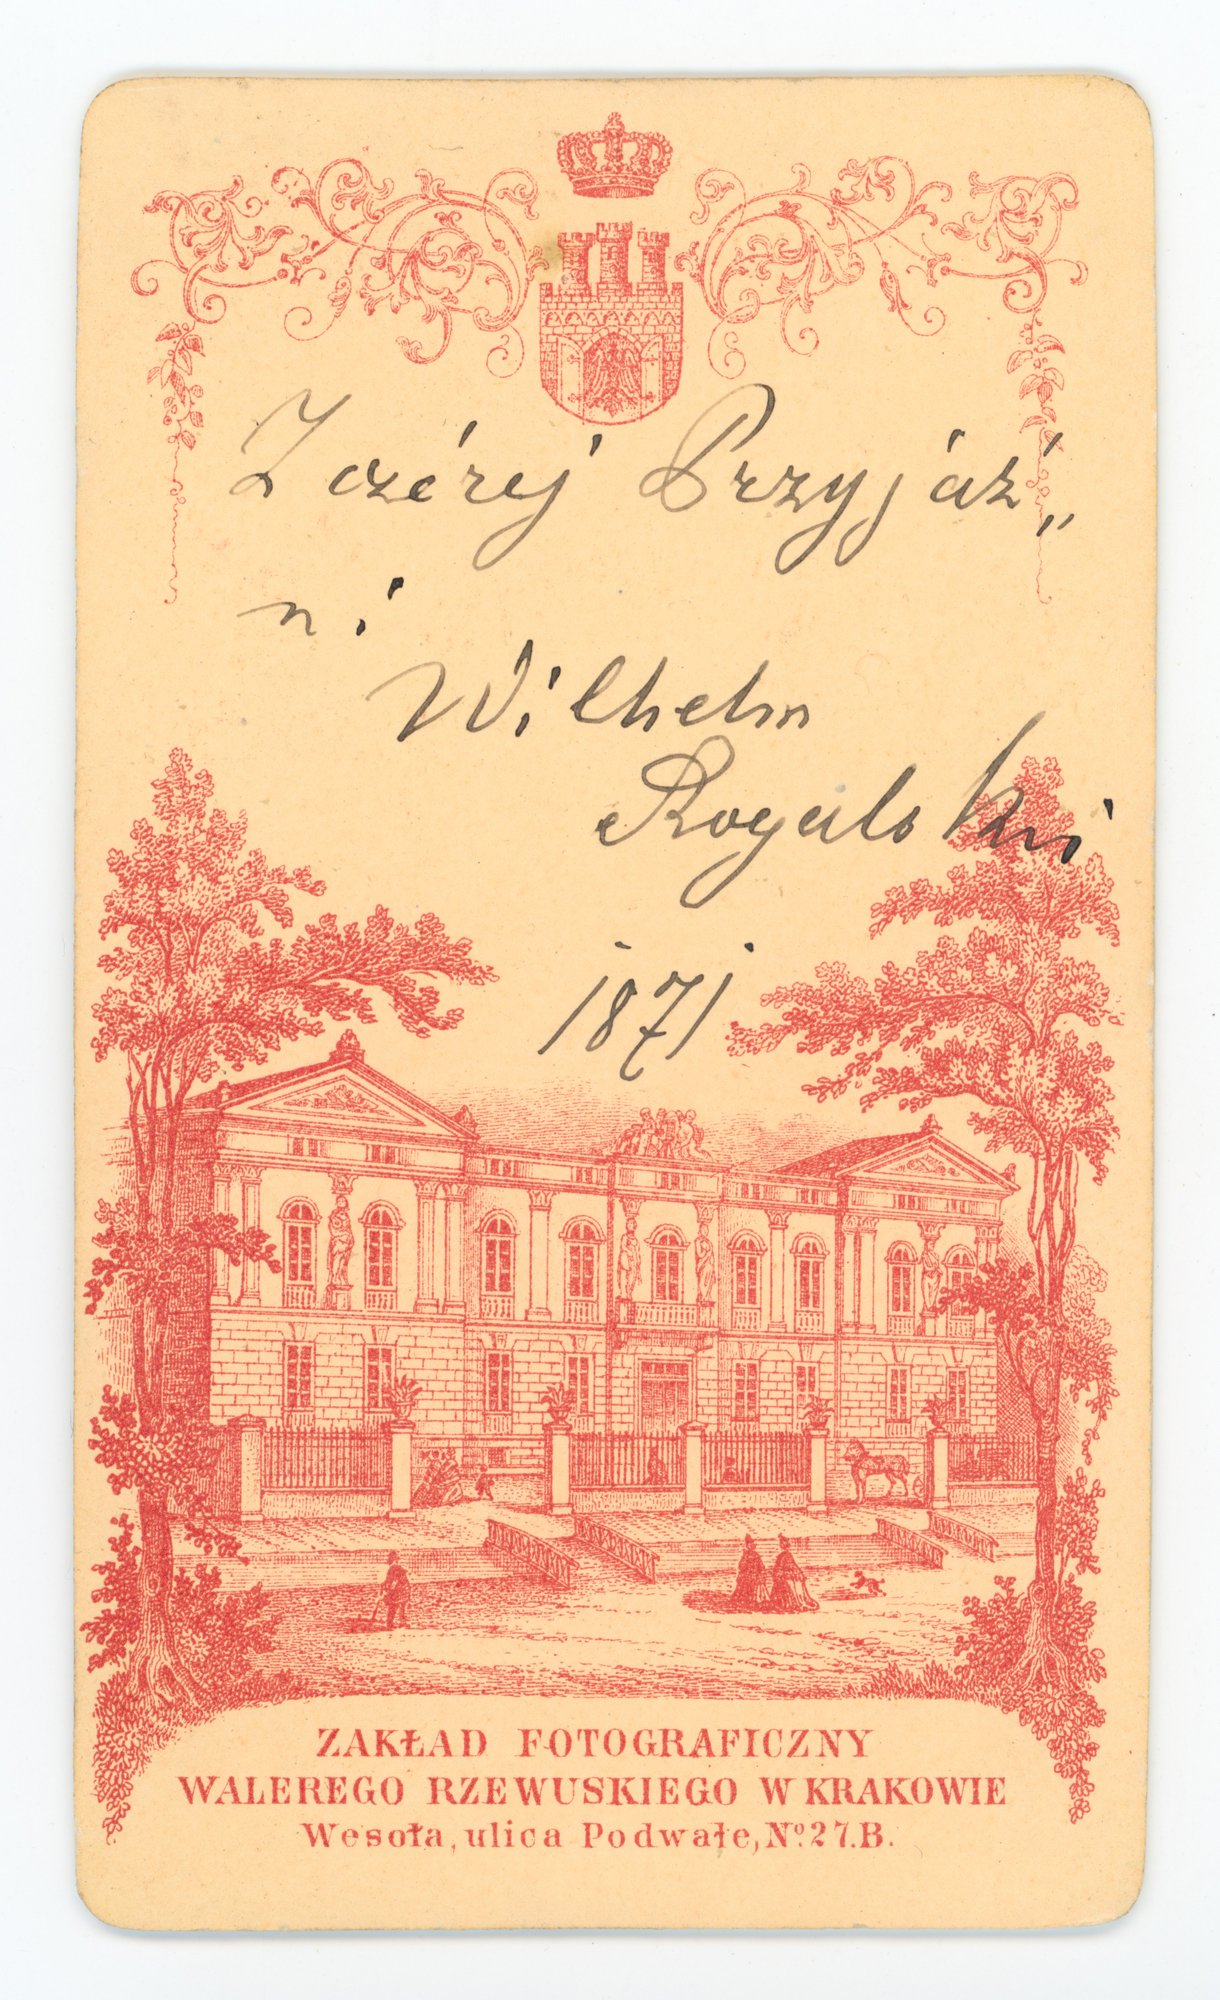 Z czérej Przyjáź„
ni
Wilhelm
Rogalski
1871
ZAKŁAD FOTOGRAFICZNY
WALEREGO RZEWUSKIEGO W KRAKOWIE
Wesoła, ulica Podwale, Nº 27.B.